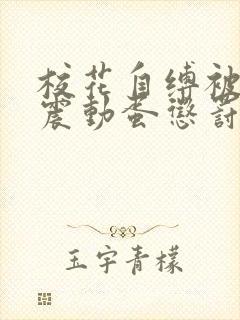 校花自缚被
震动蛋惩罚
玉宇青檬